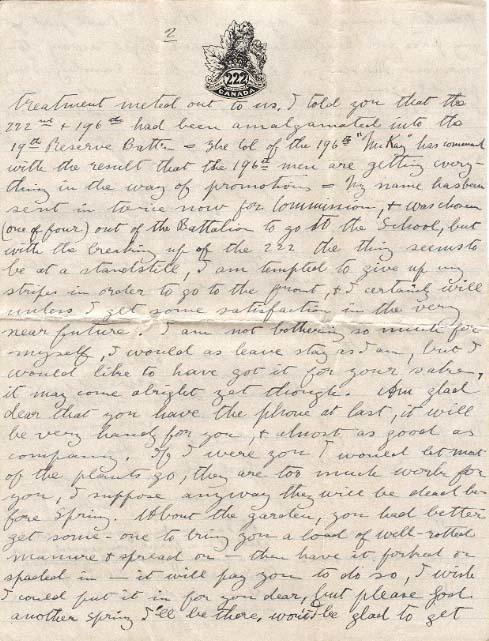 2
222
CANADA
treatment meted out to us, I told you that the
222nd & 196th had been amalgamated into the
19th Reserve Battn = The Col of the 196th "McKay" has command
with the result that the 196th men are getting every-
thing in the way of promotions = My name has been
sent in twice now for Commission, & was chosen
(one of four) out of the Battalion to go to the School, but
with the breaking up of the 222 the thing seems to
be at a standstill, I am tempted to give up my
stripes in order to go to the front, & I certainly will
unless I get some satisfaction in the very
near future. I am not bothering so much for
myself, I would as leave stay as I am, but I
would like to have got it for your sake,
it may come alright yet though. Am glad
dear that you have the phone at last, it will
be very handy for you, & almost as good as
company. If I were you I would let most
of the plants go, they are too much work for
you, I suppose anyway they will be dead be-
fore Spring. About the garden, you had better
get some-one to bring you a load of well-rotted
manure & spread on — then have it forked or
spaded in — it will pay you to do so, I wish
I could put it in for you dear, but please God
another Spring I'll be there, won't be glad to get